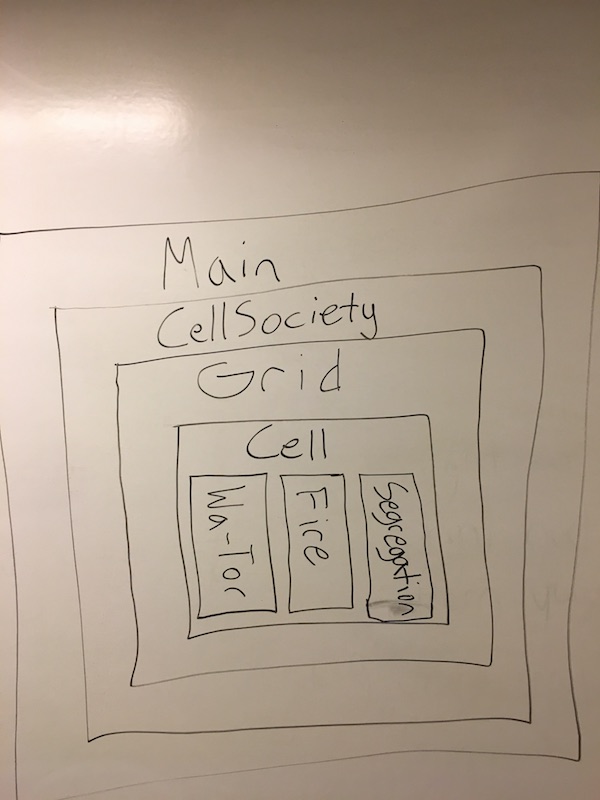 Main
CellSociety
Grid
Cell
Wa-Tor
Fire
Segregation